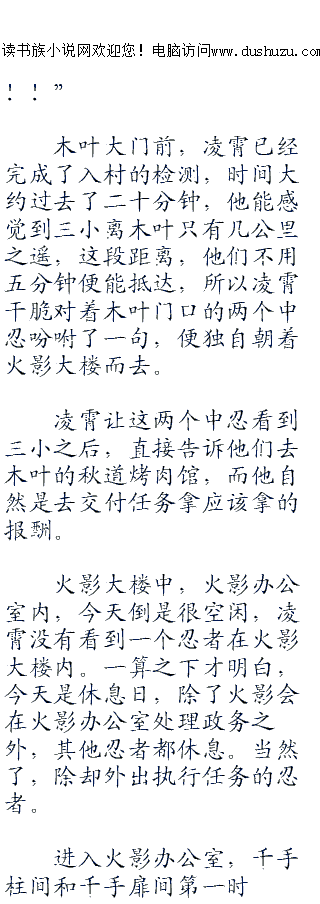 读书族小说网欢迎您！电脑访问www.dushuzu.com
！！”
木叶大门前，凌霄已经
完成了入村的检测，时间大
约过去了二十分钟，他能感
觉到三小离木叶只有几公里
之遥，这段距离，他们不用
五分钟便能抵达，所以凌霄
干脆对着木叶门口的两个中
忍吩咐了一句，便独自朝着
火影大楼而去。
凌霄让这两个中忍看到
三小之后，直接告诉他们去
木叶的秋道烤肉馆，而他自
然是去交付任务拿应该拿的
报酬。
火影大楼中，火影办公
室内，今天倒是很空闲，凌
霄没有看到一个忍者在火影
大楼内。一算之下才明白，
今天是休息日，除了火影会
在火影办公室处理政务之
外，其他忍者都休息。当然
了，除却外出执行任务的忍
者。
进入火影办公室，千手
柱间和千手扉间第一时